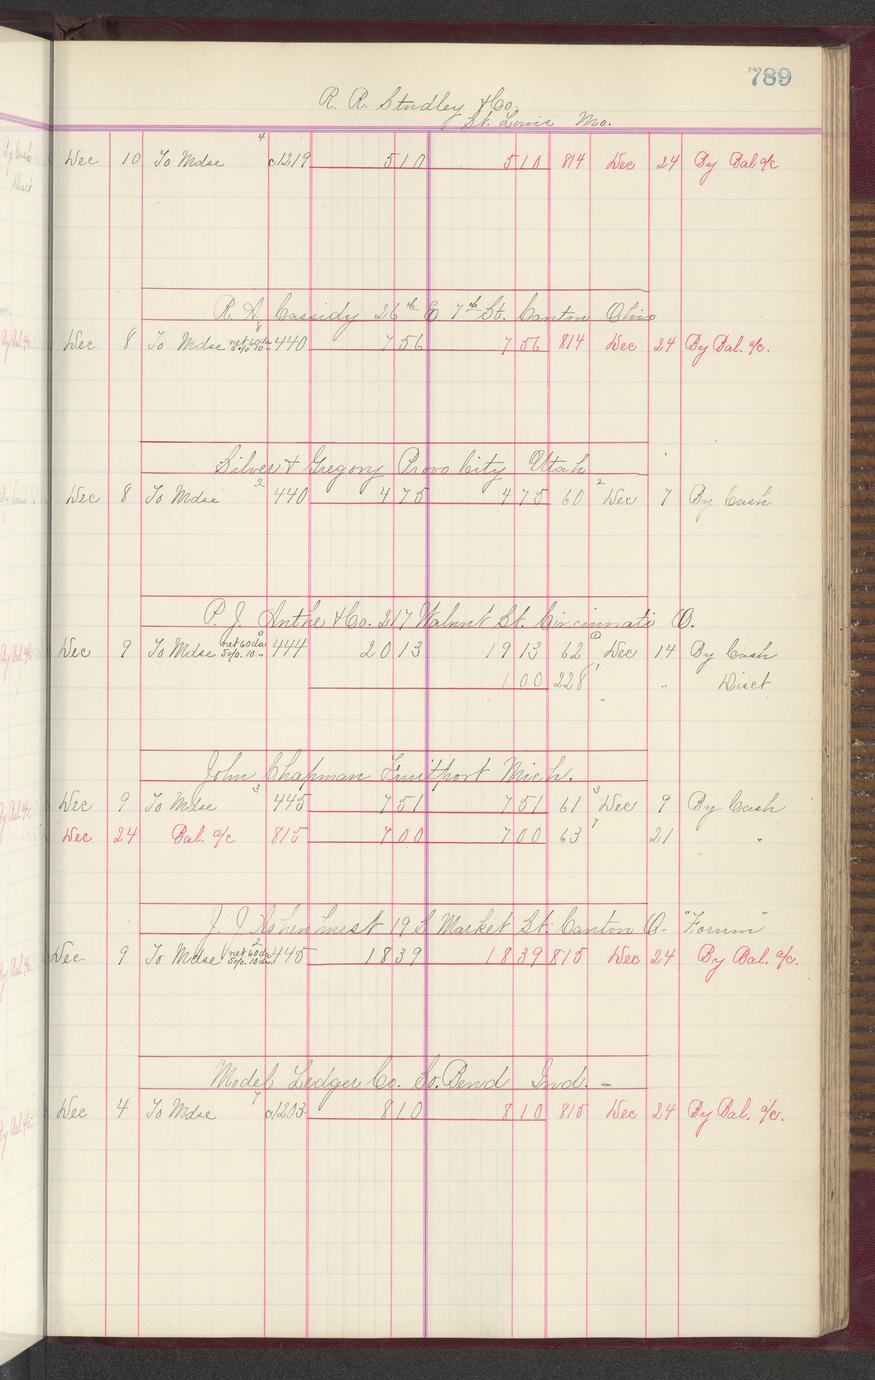 789
R. R. Studley & Co.
St. Louis Mo.
Dec 10 To Mdse 4 c1319 5 10 5 10 814 Dec 24 By Bal a/c
R. A. Cassidy 26th & 7th St. Canton Ohio
Dec 8 To Mdse 8 net 60 da 5% 10 " 440 7 56 7 56 814 Dec 24 By Bal. a/c.
Silver & Gregory Provo City Utah
Dec 8 To Mdse 2 440 4 75 4 75 60 2 Dec 7 By Cash
P. J. & Co. 217 Walnut St. Cincinnati O.
Dec 9 To Mdse net 60 da 5%. 10 " 444 20 13 19 13 62 Dec 14 By Cash
1 00 228 1 " Disct
John Chapman Fruitport Mich.
Dec 9 To Mdse 3 445 7 51 7 51 61 3 Dec 9 By Cash
Dec 24 Bal. a/c 815 7 00 7 00 63 7 21 "
J. J. Ashenhurst 19 S Market St. Canton O- "Forum"
Dec 9 To Mdse 2 net 60 da 5%. 10 da 445 18 39 18 39 815 Dec 24 By Bal. a/c.
Model Ledger Co. So. Bend Ind. -
Dec 4 To Mdse 7 c1203 8 10 8 10 815 Dec 24 By Bal. a/c.